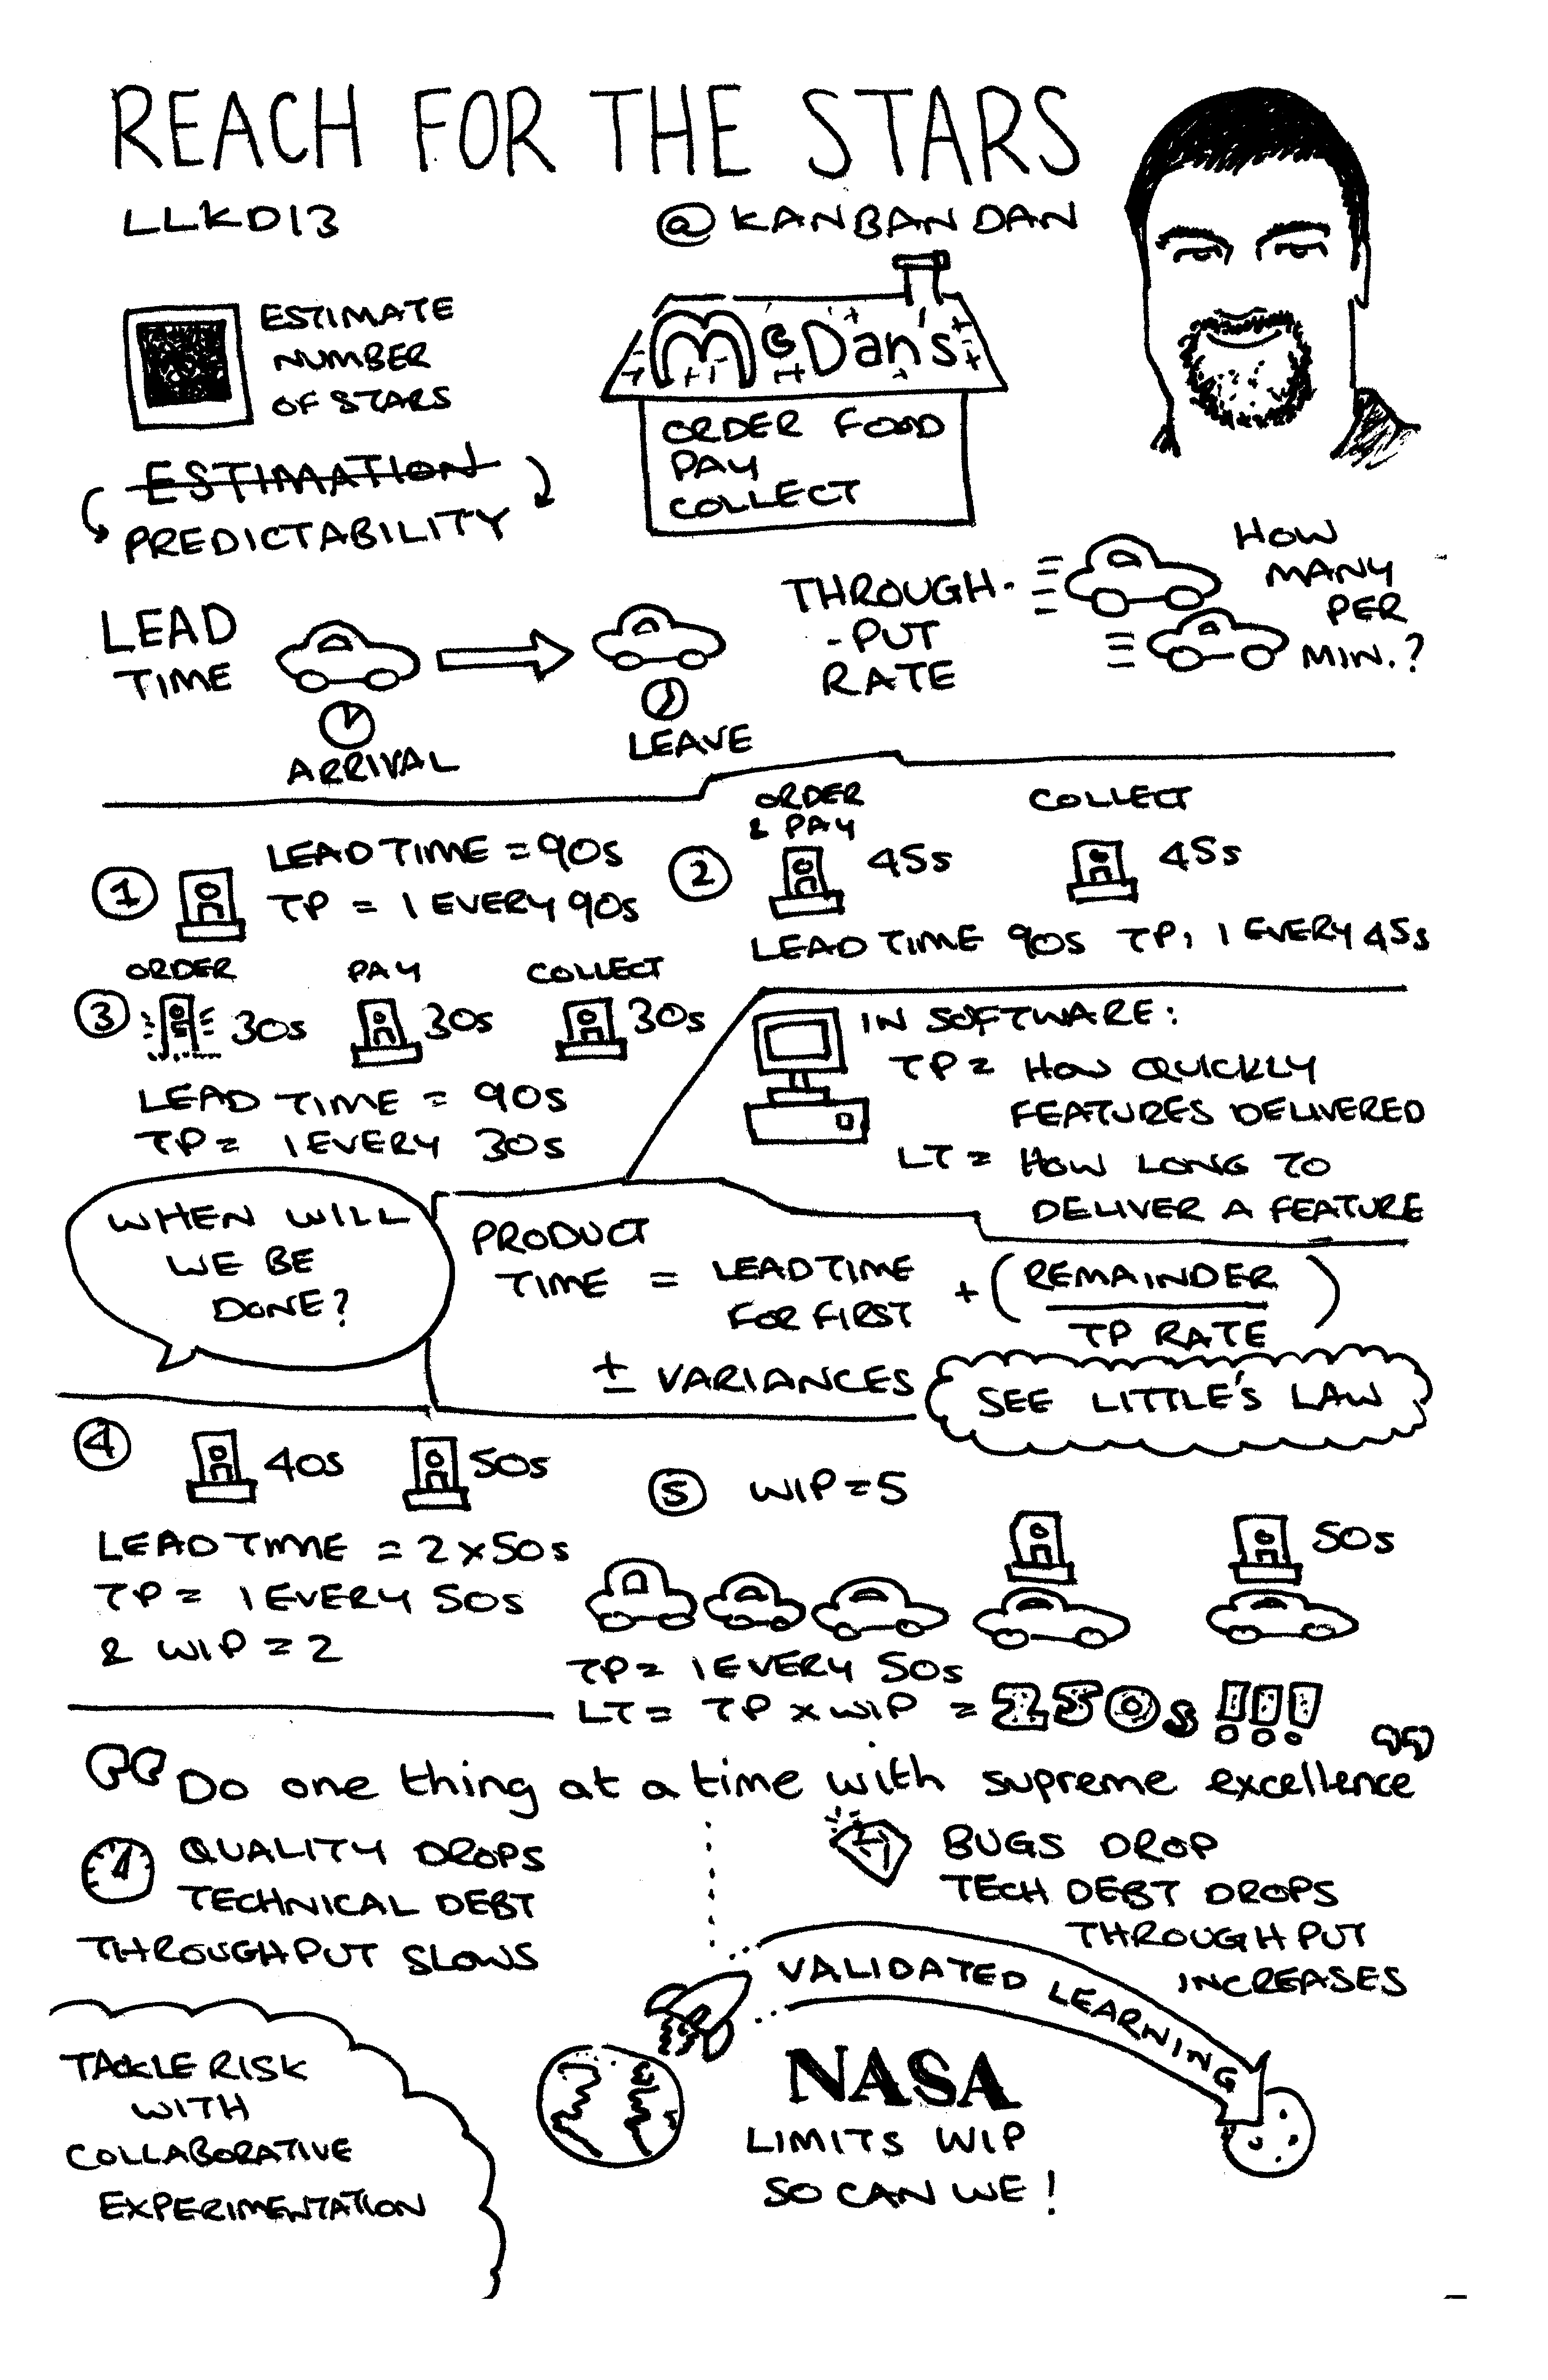 REACH FOR THE STARS
LLKD13
@KANBANDAN
ESTIMATE
NUMBER
OF STARS
McDan's
ORDER FOOD
PAY
COLLECT
ESTIMATION
PREDICTABILITY
LEAD
TIME
ARRIVAL
LEAVE
THROUGH-
-PUT
RATE
HOW
MANY
PER
MIN.?
1
LEAD TIME = 90s
TP = 1 EVERY 90s
2
ORDER
& PAY
45s
COLLECT
45s
LEAD TIME 90s TP, 1 EVERY 45s
3
ORDER
30s
PAY
30s
COLLECT
30s
LEAD TIME = 90s
TP = 1 EVERY 30s
IN SOFTWARE:
TP = HOW QUICKLY
FEATURES DELIVERED
LT = HOW LONG TO
DELIVER A FEATURE
WHEN WILL
WE BE
DONE?
PRODUCT
TIME = LEAD TIME
FOR FIRST
+ (REMAINDER
TP RATE)
± VARIANCES
SEE LITTLE'S LAW
4
40s
50s
LEAD TIME = 2 x 50s
TP = 1 EVERY 50s
& WIP = 2
5
WIP = 5
50s
TP = 1 EVERY 50s
LT = TP x WIP = 250s !!!
“Do one thing at a time with supreme excellence”
QUALITY DROPS
TECHNICAL DEBT
THROUGHPUT SLOWS
BUGS DROP
TECH DEBT DROPS
THROUGHPUT
INCREASES
VALIDATED LEARNING
TACKLE RISK
WITH
COLLABORATIVE
EXPERIMENTATION
NASA
LIMITS WIP
SO CAN WE!